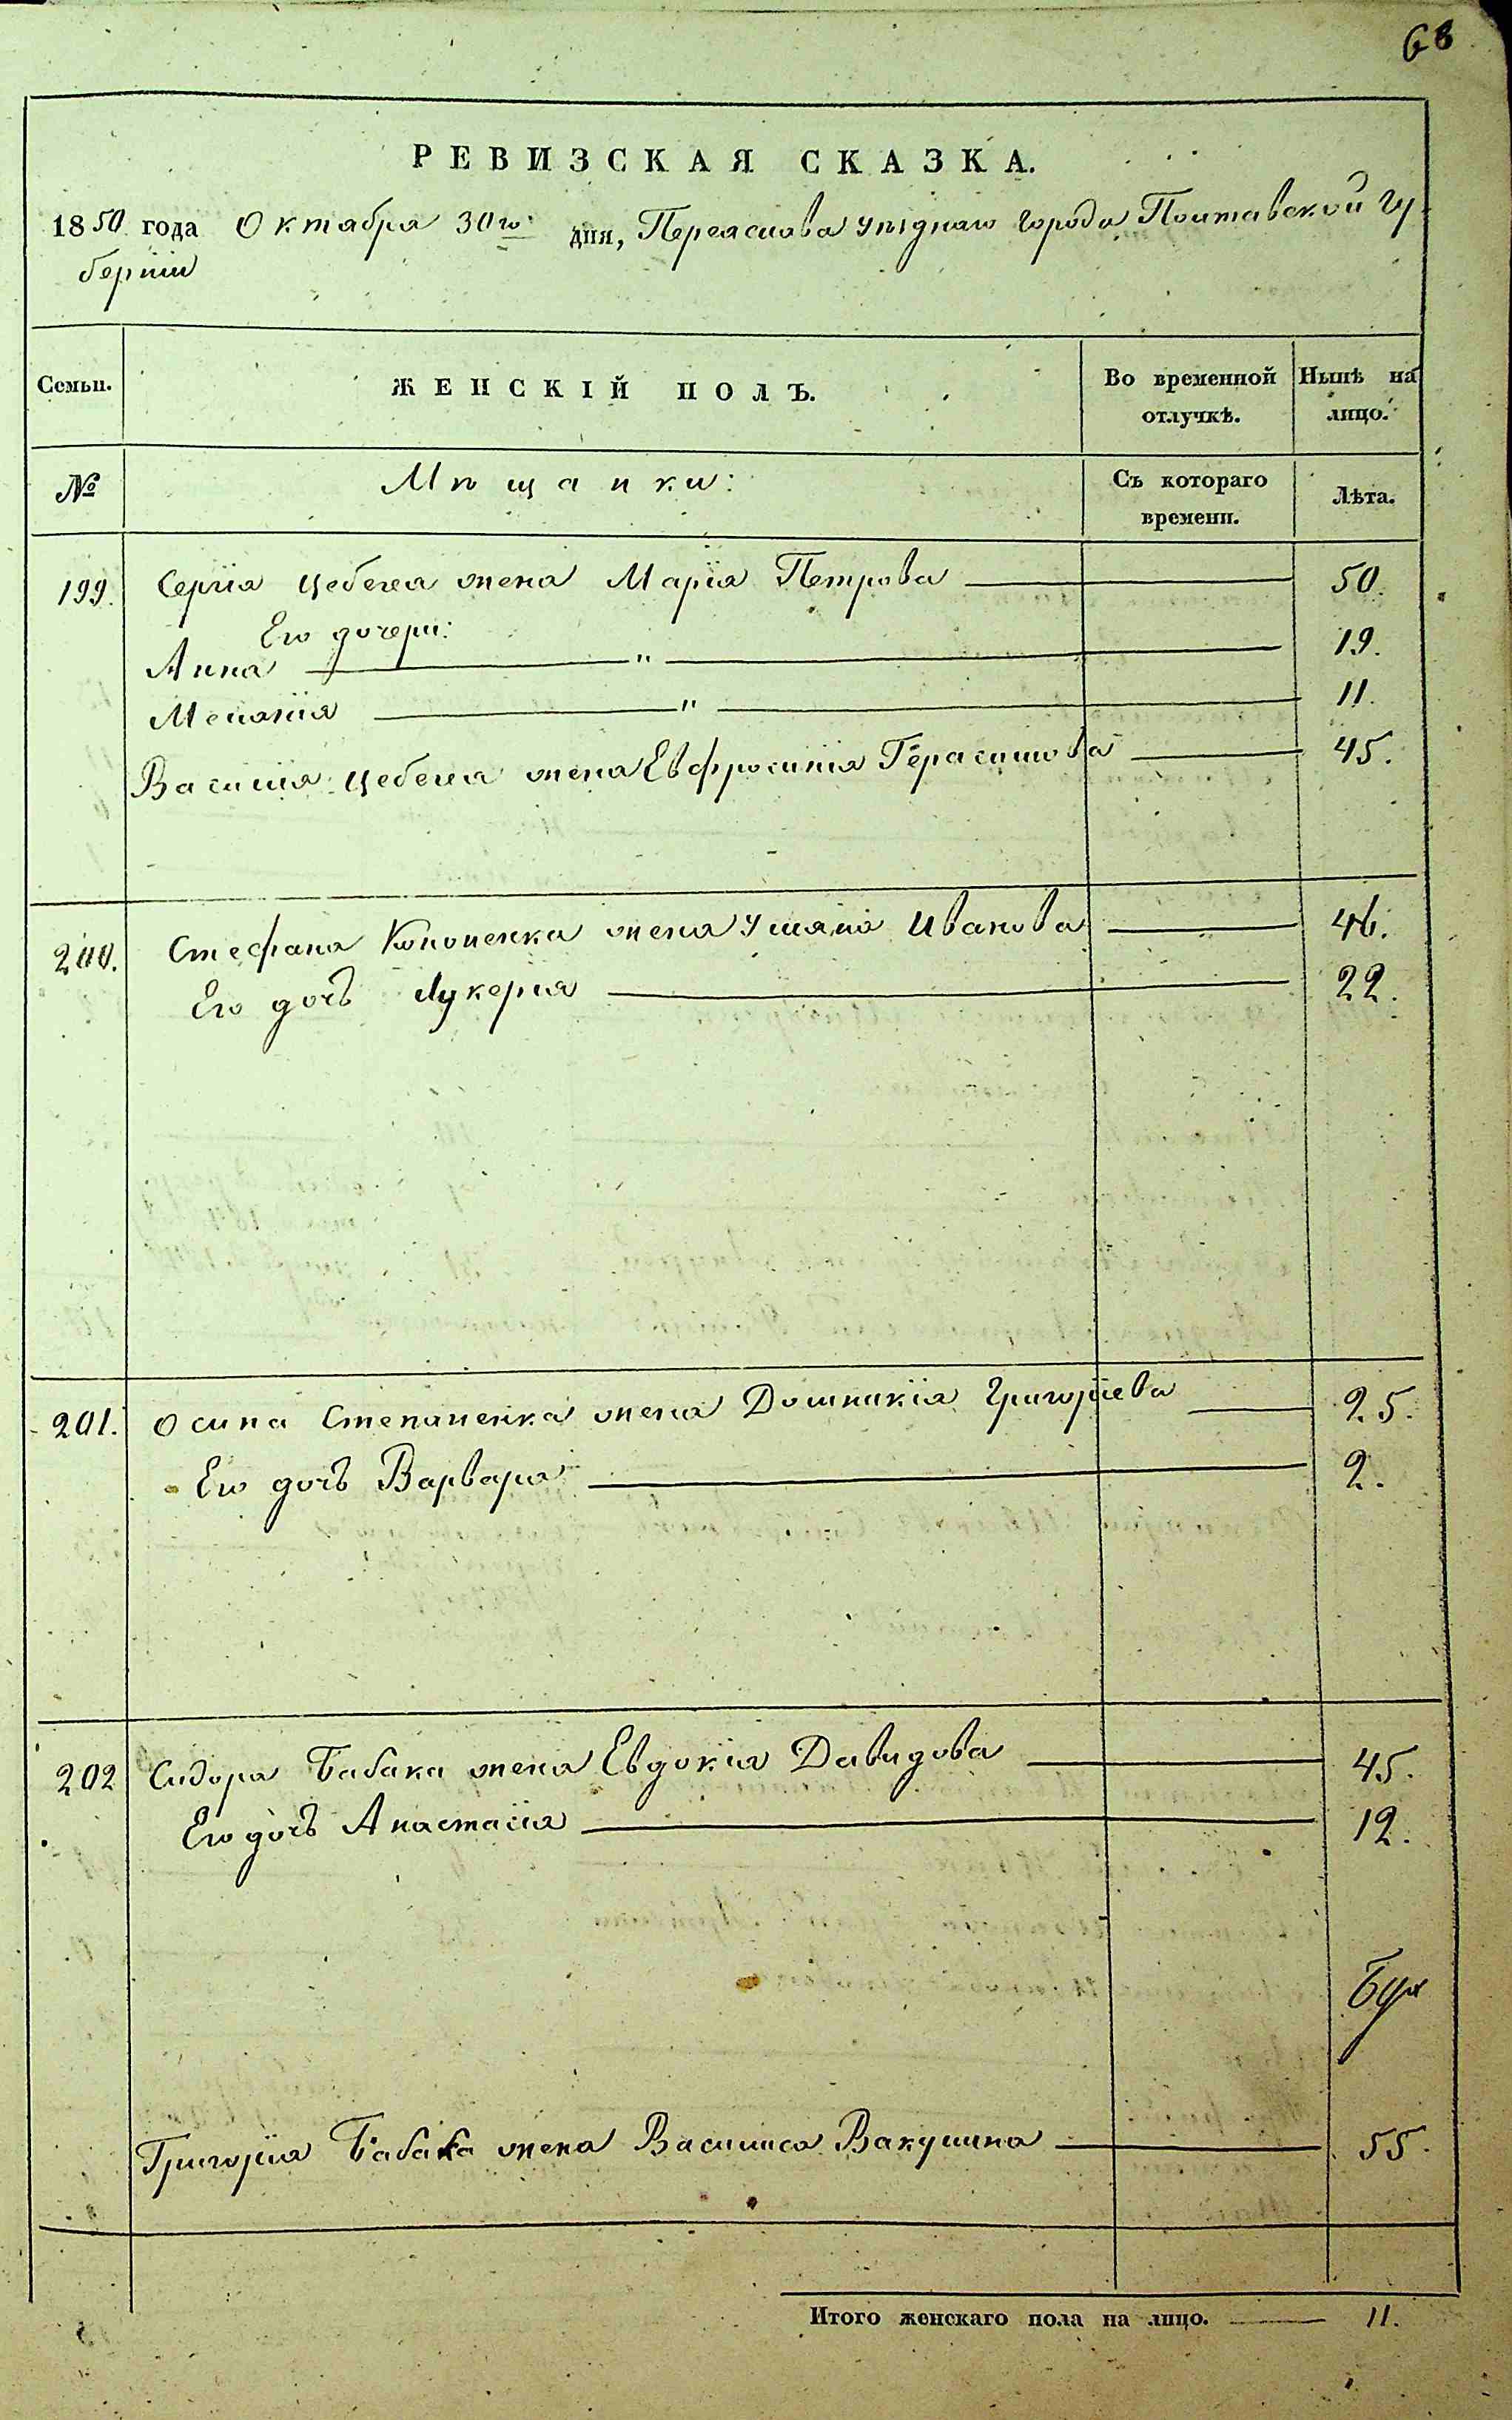 68
РЕВИЗСКАЯ СКАЗКА.
1850 года Октября 30го дня, Переяслова уѣзднаго города Полтавской гу
берніи
Семьи. ЖЕНСКІЙ ПОЛЪ. Во временной отлучкѣ. Нынѣ на лицо.
№ Мѣщанки: Съ котораго времени. Лѣта.
199. Сергія Цебега жена Марія Петрова — 50.
Его дочери:
Анна — " — 19.
Меланія — " — 11.
Василія Цебега жена Евфросинія Герасимова — 45.
200. Стефана Кононенка жена Уляна Иванова — 46.
Его дочь Лукерия — 22.
201. Осипа Степаненка жена Домникія Григорїева — 25.
Его дочь Варвара — 2.
202 Сидора Бабака жена Евдокія Давидова — 45.
Его дочь Анастасія — 12.
Григорія Бабака жена Василиса Вакулина — 55.
Итого женскаго пола на лицо. — 11.